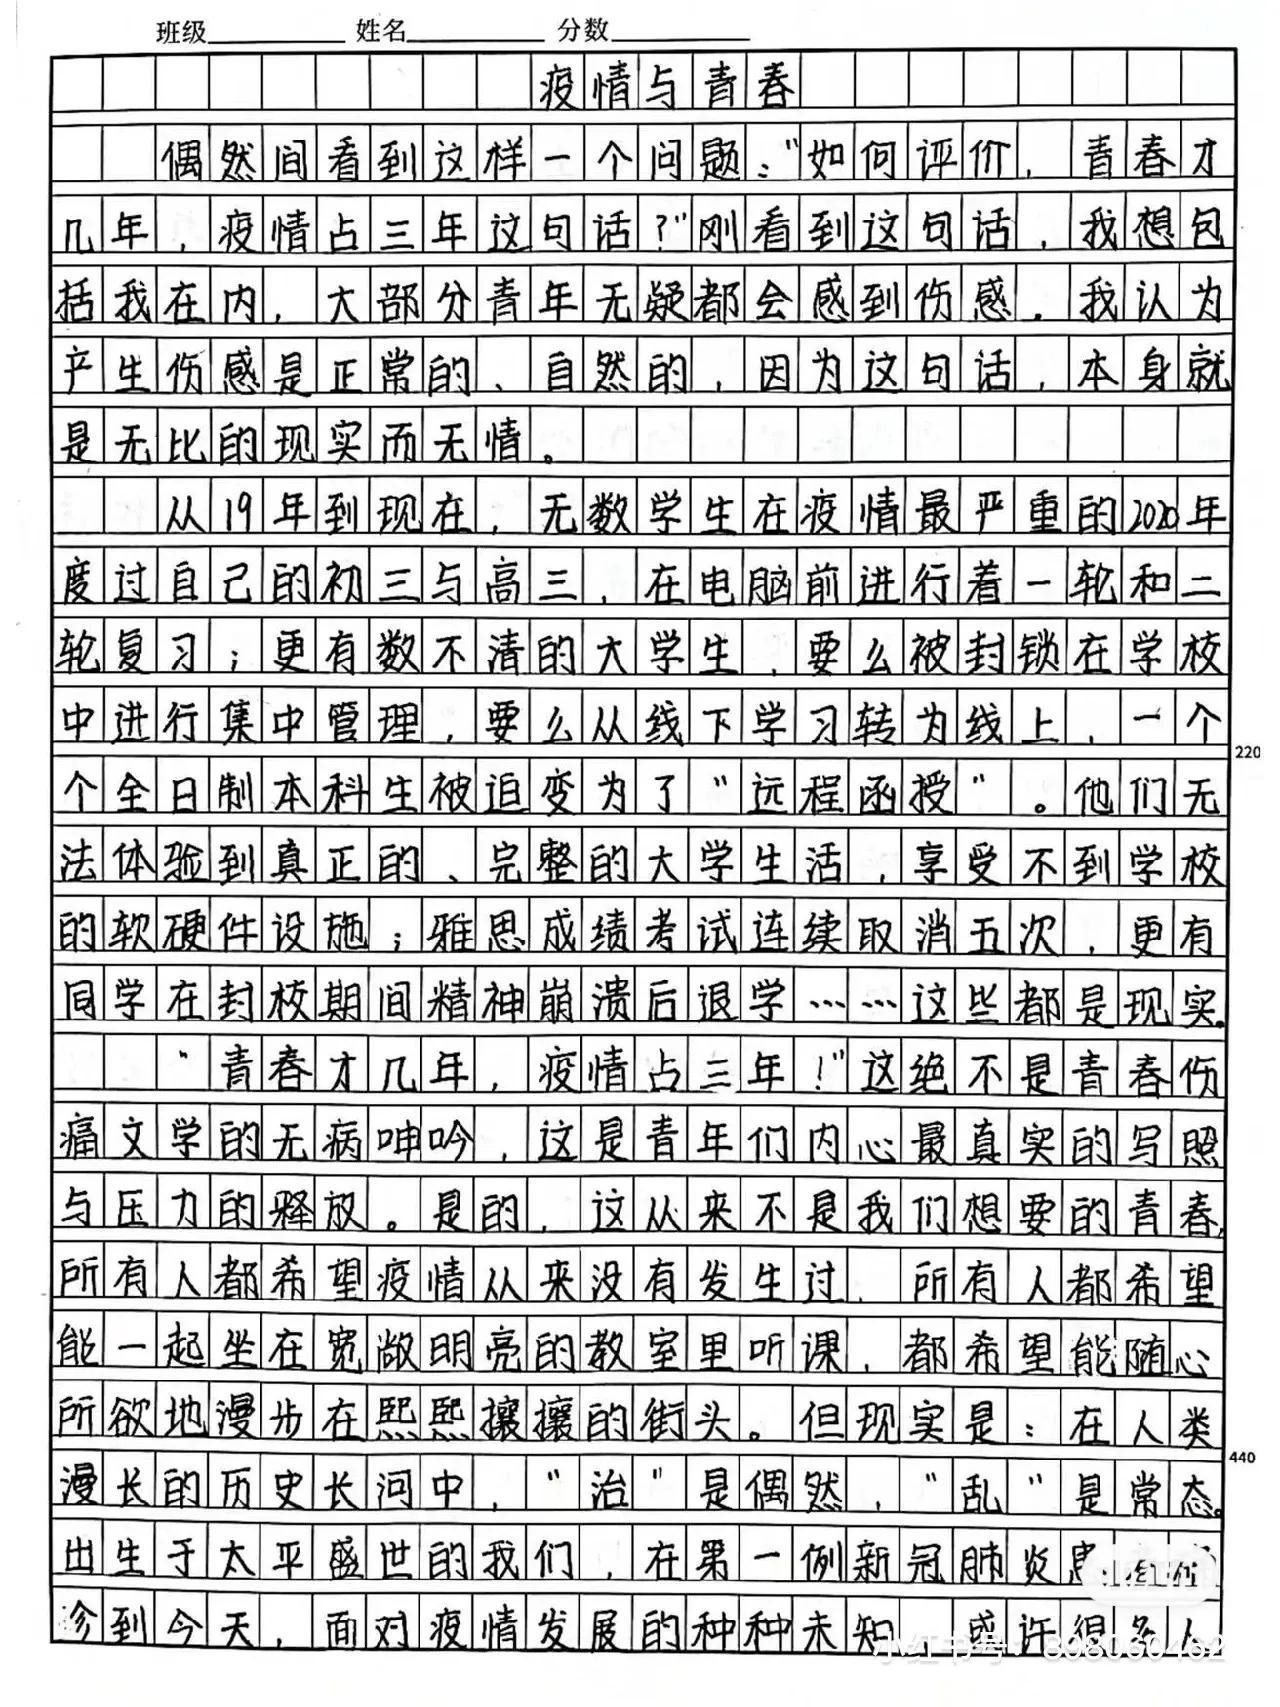 班级 姓名 分数
疫情与青春
偶然间看到这样一个问题：“如何评价，青春才
几年，疫情占三年这句话？”刚看到这句话，我想包
括我在内，大部分青年无疑都会感到伤感。我认为
产生伤感是正常的、自然的，因为这句话，本身就
是无比的现实而无情。
从19年到现在，无数学生在疫情最严重的2020年
度过自己的初三与高三，在电脑前进行着一轮和二
轮复习；更有数不清的大学生，要么被封锁在学校
中进行集中管理，要么从线下学习转为线上，一个
220
个全日制本科生被迫变为了“远程函授”。他们无
法体验到真正的、完整的大学生活，享受不到学校
的软硬件设施；雅思成绩考试连续取消五次，更有
同学在封校期间精神崩溃后退学……这些都是现实。
“青春才几年，疫情占三年！”这绝不是青春伤
痛文学的无病呻吟，这是青年们内心最真实的写照
与压力的释放。是的，这从来不是我们想要的青春，
所有人都希望疫情从来没有发生过，所有人都希望
能一起坐在宽敞明亮的教室里听课，都希望能随心
所欲地漫步在熙熙攘攘的街头。但现实是：在人类
440
漫长的历史长河中，“治”是偶然，“乱”是常态。
出生于太平盛世的我们，在第一例新冠肺炎患
诊到今天，面对疫情发展的种种未知，或许很多人
小红书号：898060462